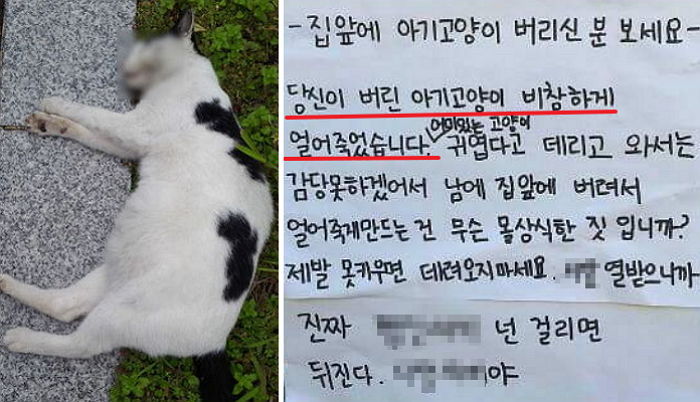 -집앞에 아기고양이 버리신 분 보세요-
당신이 버린 아기고양이 비참하게
얼어죽었습니다. 어미있는 고양이 귀엽다고 데리고 와서는
감당못하겠어서 남에 집앞에 버려서
얼어죽게만드는건 무슨 몰상식한 짓 입니까?
제발 못키우면 데려오지마세요. 열받으니까
진짜 넌 걸리면
뒤진다. 야